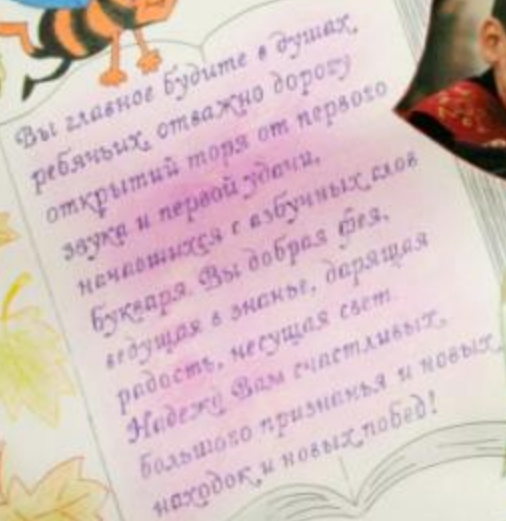 Вы главное будите в душах
ребячьих, отважно дорогу
открытий торя от первого
звука и первой удачи,
начавшихся с азбучных слов
букваря. Вы добрая фея,
ведущая в знанье, дарящая
радость, несущая свет.
Надежд Вам счастливых,
большого признанья и новых
находок и новых побед!